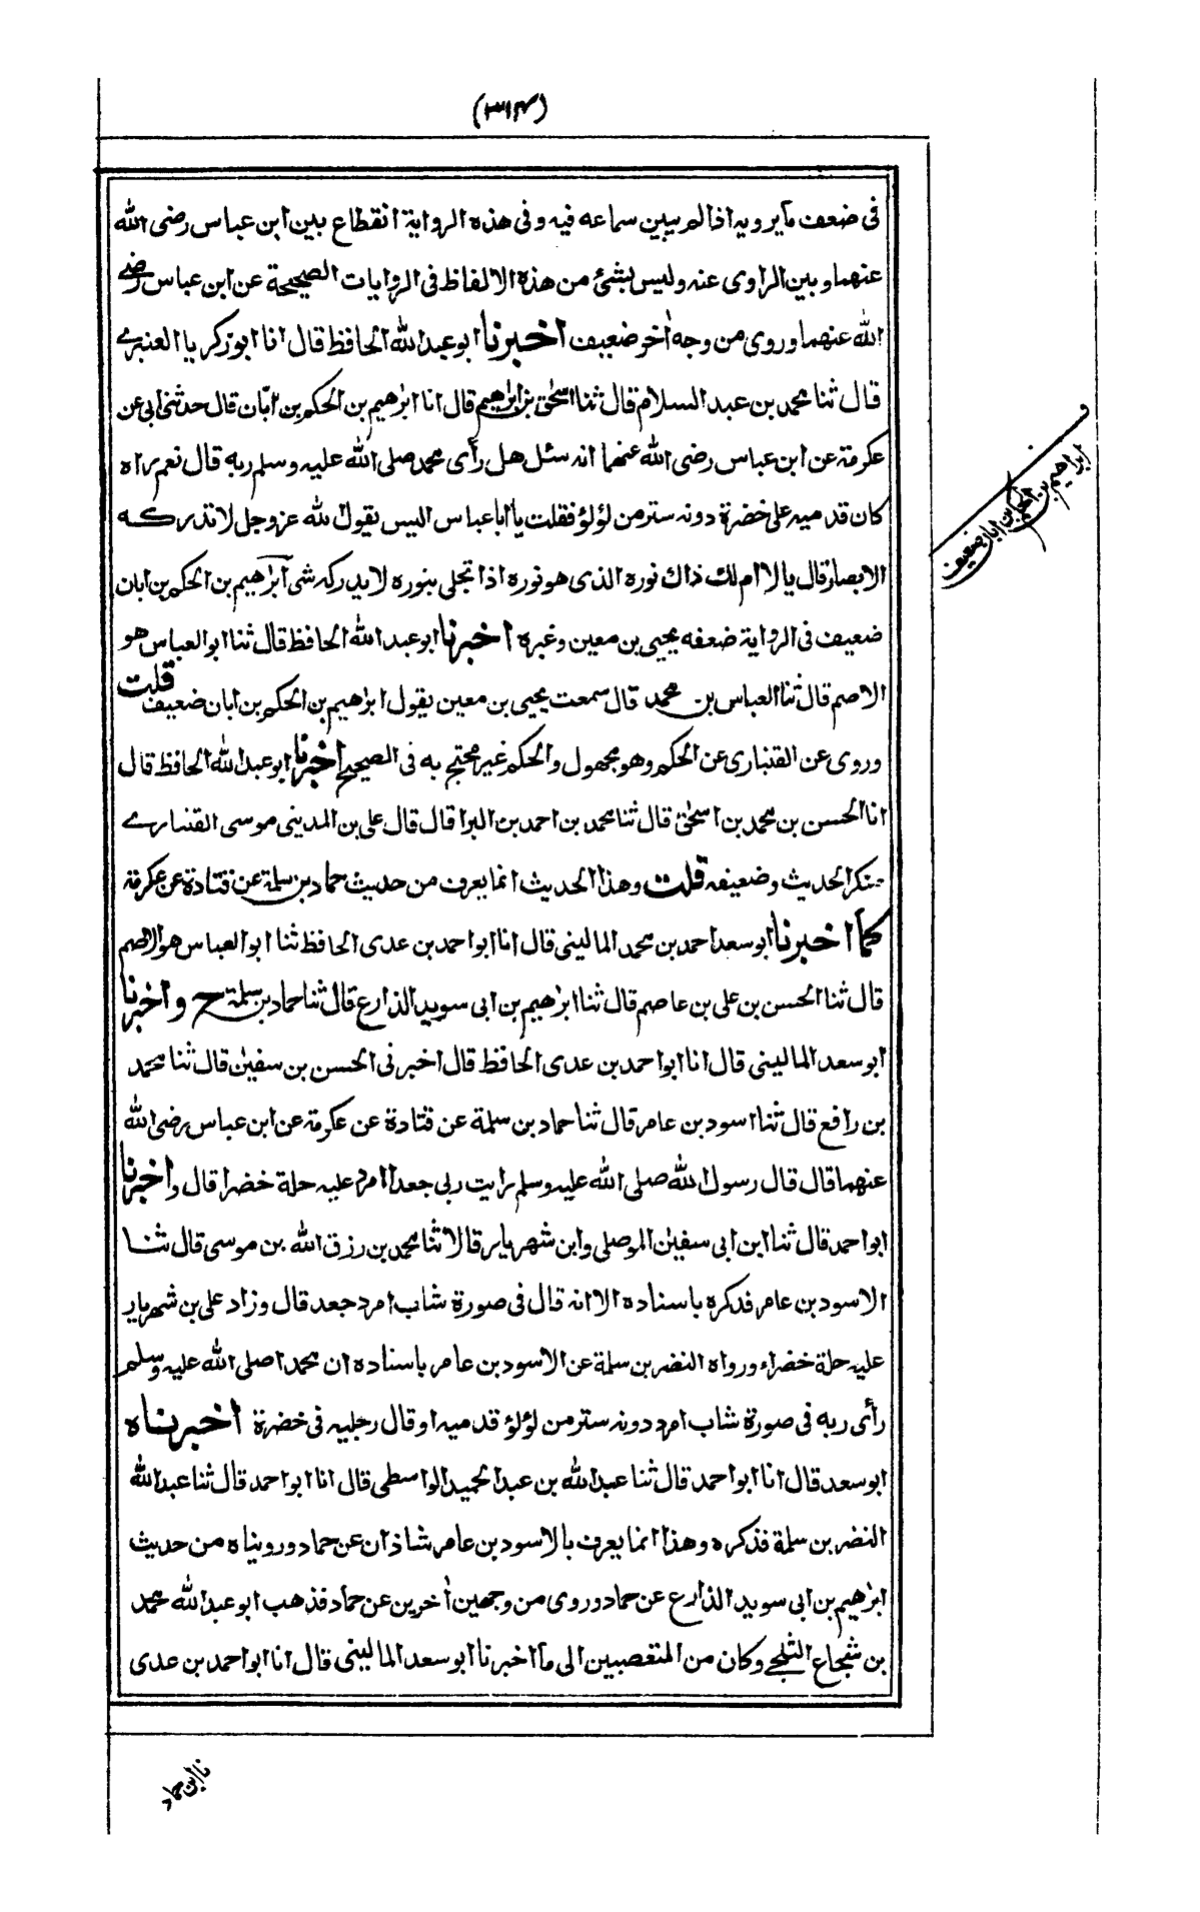 (٣١٣)
فى ضعف ما يرويه اذا لم يبين سماعه فيه وفى هذه الرواية انقطاع بين ابن عباس رضى الله
عنهما وبين الراوى عنه وليس بشئ من هذه الالفاظ فى الروايات الصحيحة عن ابن عباس رضے
الله عنهما وروى من وجه اٰخر ضعيف اخبرنا ابو عبد الله الحافظ قال انا ابو زكريا العنبرے
قال ثنا محمد بن عبد السلام قال ثنا اسحٰق بن ابرٰهيم قال انا ابرٰهيم بن الحكم بن ابان قال حدثنى ابى عن
عكرمة عن ابن عباس رضى الله عنهما انه سئل هل رأى محمد صلى الله عليه وسلم ربه قال نعم راٰه
كان قدميه على خضرة دونه ستر من لؤلؤ فقلت يا ابا عباس اليس يقول الله عز وجل لا تدركه
الابصار قال يا لا ام لك ذاك نوره الذى هو نوره اذا تجلى بنوره لا يدركه شى ابرٰهيم بن الحكم بن ابان
ضعيف فى الرواية ضعفه يحيى بن معين وغيره اخبرنا ابو عبد الله الحافظ قال ثنا ابو العباس هو
الاصم قال ثنا العباس بن محمد قال سمعت يحيى بن معين يقول ابرٰهيم بن الحكم بن ابان ضعيف قلت
وروى عن القنبارى عن الحكم وهو مجهول والحكم غير محتج به فى الصحيح اخبرنا ابو عبد الله الحافظ قال
انا الحسن بن محمد بن اسحٰق قال ثنا محمد بن احمد بن البرا قال قال على بن المدينى موسى القنبارے
منكر الحديث وضعيفه قلت وهذا الحديث انما يعرف من حديث حماد بن سلمة عن قتادة عن عكرمة
كما اخبرنا ابو سعد احمد بن محمد المالينى قال انا ابو احمد بن عدى الحافظ ثنا ابو العباس هو الاصم
قال ثنا الحسن بن على بن عاصم قال ثنا ابرٰهيم بن ابى سويد الذارع قال ثنا حماد بن سلمة ح واخبرنا
ابو سعد المالينى قال انا ابو احمد بن عدى الحافظ قال اخبرنى الحسن بن سفيٰن قال ثنا محمد
بن رافع قال ثنا اسود بن عامر قال ثنا حماد بن سلمة عن قتادة عن عكرمة عن ابن عباس رضى الله
عنهما قال قال رسول الله صلى الله عليه وسلم رايت ربى جعدا امرد عليه حلة خضرا قال واخبرنا
ابو احمد قال ثنا ابن ابى سفيٰن الموصلى وابن شهريار قالا ثنا محمد بن رزق الله بن موسى قال ثنا
الاسود بن عامر فذكره باسناده الا انه قال فى صورة شاب امرد جعد قال وزاد على بن شهريار
عليه حلة خضراء ورواه النضر بن سلمة عن الاسود بن عامر باسناده ان محمدا صلى الله عليه وسلم
رأى ربه فى صورة شاب امرد دونه ستر من لؤلؤ قدميه او قال رجليه فى خضرة اخبرناه
ابو سعد قال انا ابو احمد قال ثنا عبد الله بن عبد الحميد الواسطى قال انا ابو احمد قال ثنا عبد الله
النضر بن سلمة فذكره وهذا انما يعرف بالاسود بن عامر شاذان عن حماد ورويناه من حديث
ابرٰهيم بن ابى سويد الذارع عن حماد وروى من وجهين اٰخرين عن حماد فذهب ابو عبد الله محمد
بن شجاع الثلجے وكان من المتعصبين الى ما اخبرنا ابو سعد المالينى قال انا ابو احمد بن عدى
ابراهيم بن الحكم بن ابان ضعيف
نا ابن حماد